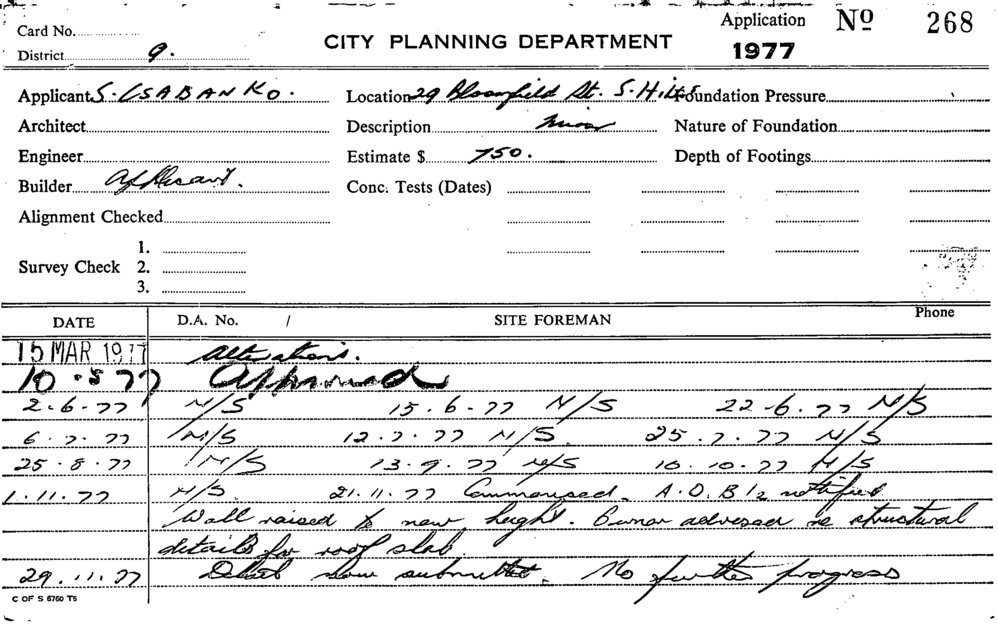 Card No. Application No 268
District 9. CITY PLANNING DEPARTMENT 1977
Applicant S. CSABANKO. Location 29 Bloomfield St. S. Hills Foundation Pressure
Architect Description Minor Nature of Foundation
Engineer Estimate $ 750. Depth of Footings
Builder Applicant. Conc. Tests (Dates)
Alignment Checked
1.
Survey Check 2.
3.
DATE D.A. No. / SITE FOREMAN Phone
15 MAR 1977 Alterations.
10.5.77 Approved
2.6.77 N/S 15.6.77 N/S 22.6.77 N/S
6.7.77 N/S 12.7.77 N/S. 25.7.77 N/S
25.8.77 N/S 13.9.77 N/S 10.10.77 N/S
1.11.77 N/S. 21.11.77 Commenced. A.O.B/2 notified
Wall raised to new height. Owner advised re structural
details for roof slab.
29.11.77 now submitted. No further progress
C OF S 6760 T5